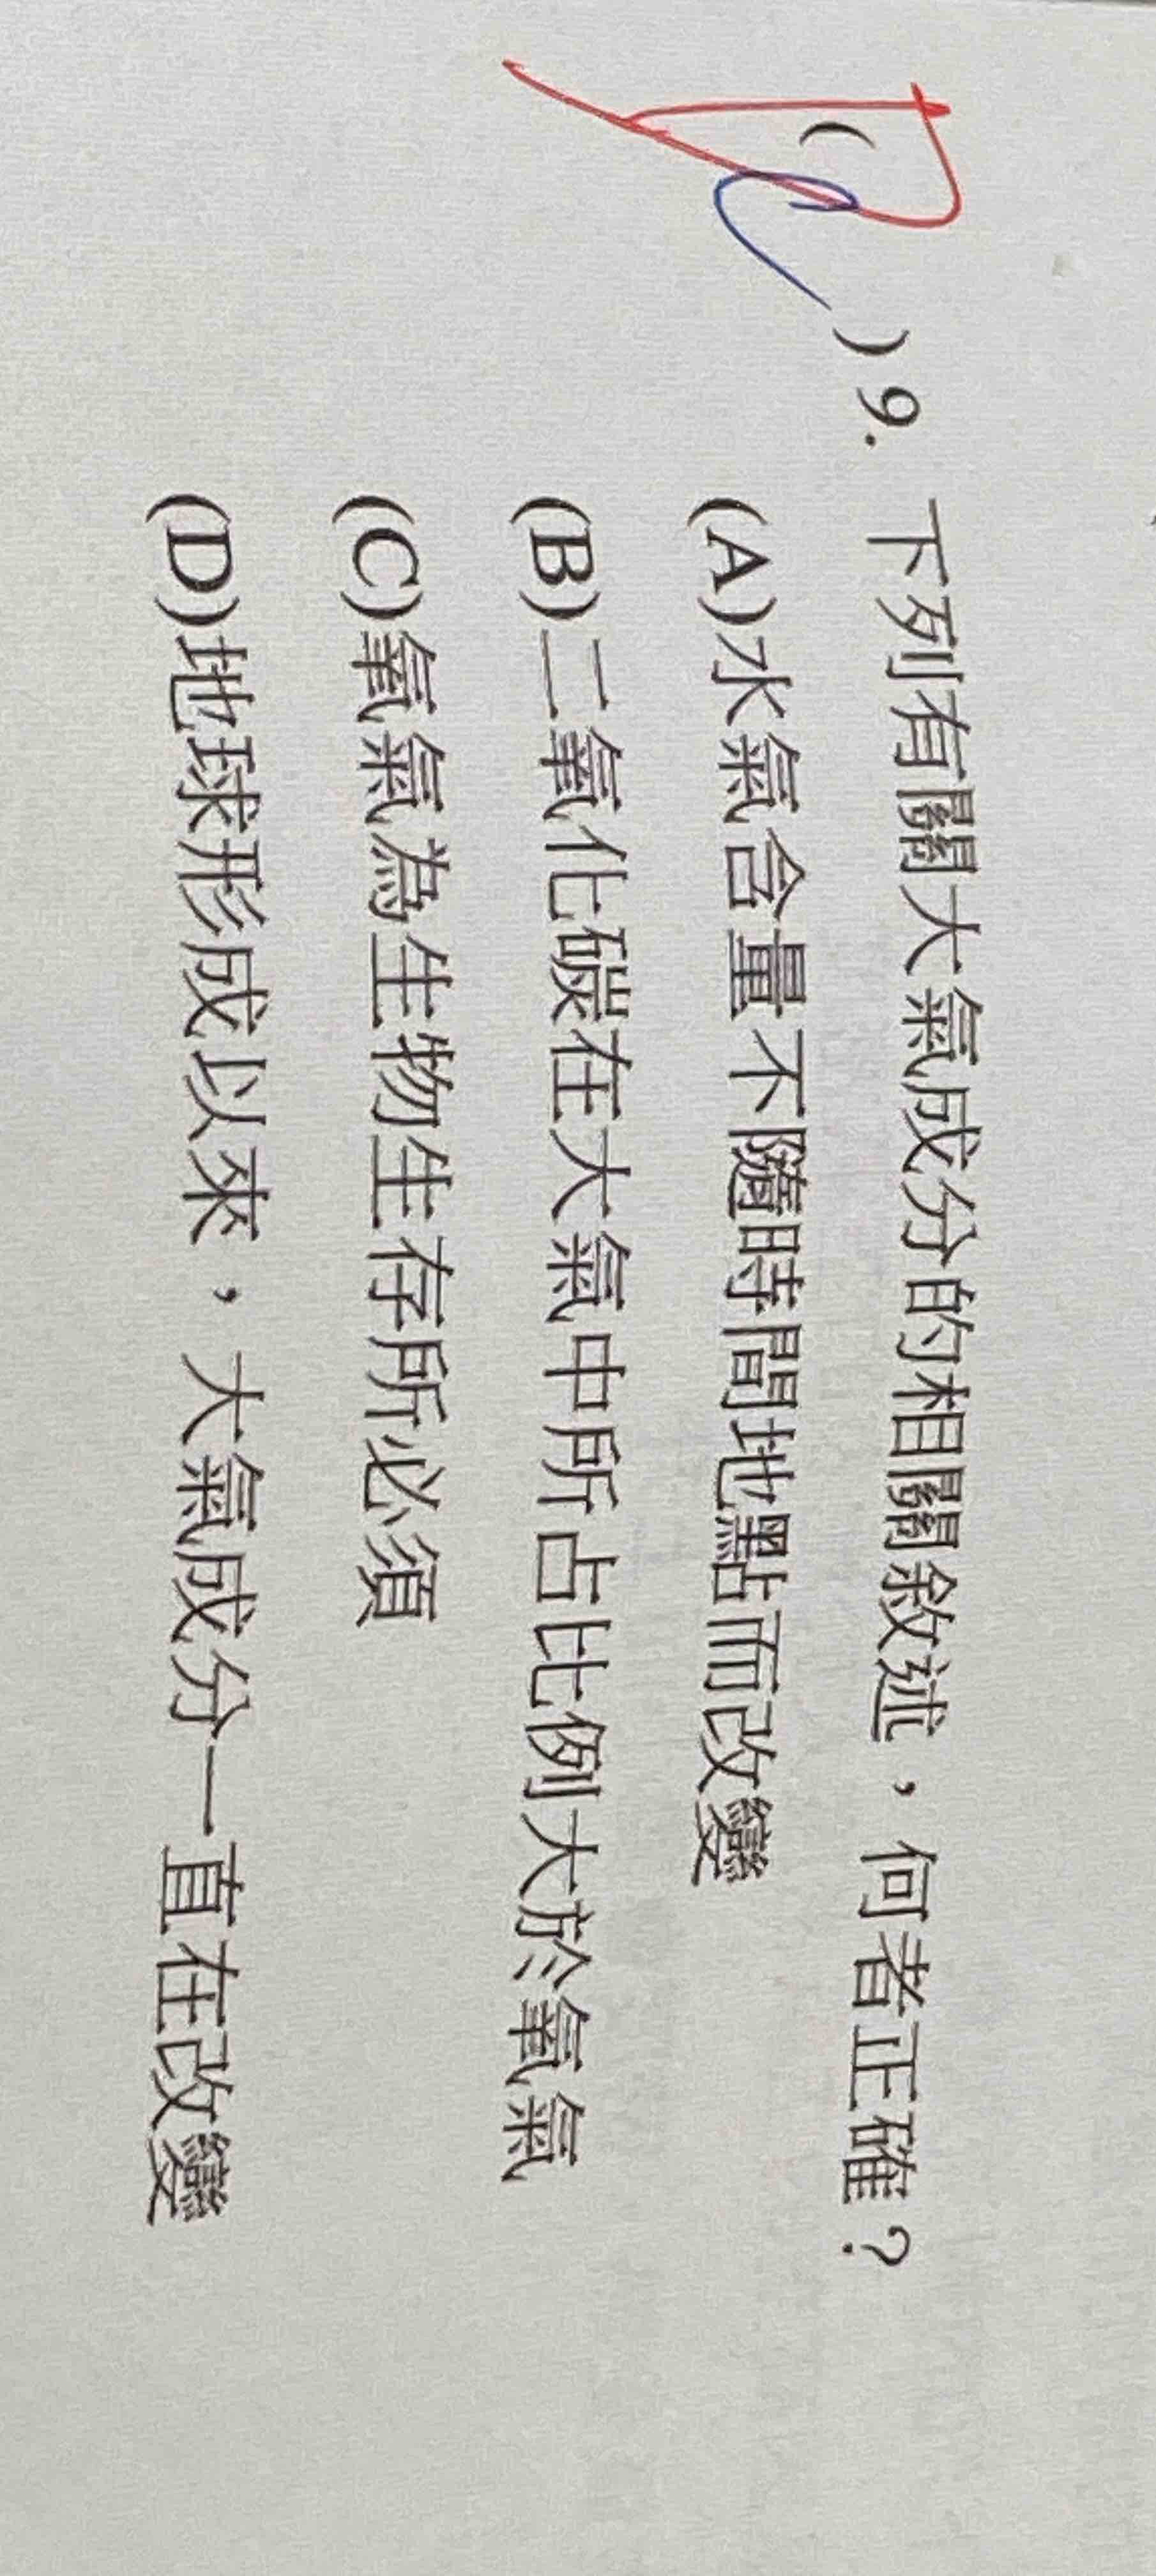 ( ) 9. 下列有關大氣成分的相關敘述，何者正確？
(A)水氣含量不隨時間地點而改變
(B)二氧化碳在大氣中所占比例大於氧氣
(C)氧氣為生物生存所必須
(D)地球形成以來，大氣成分一直在改變